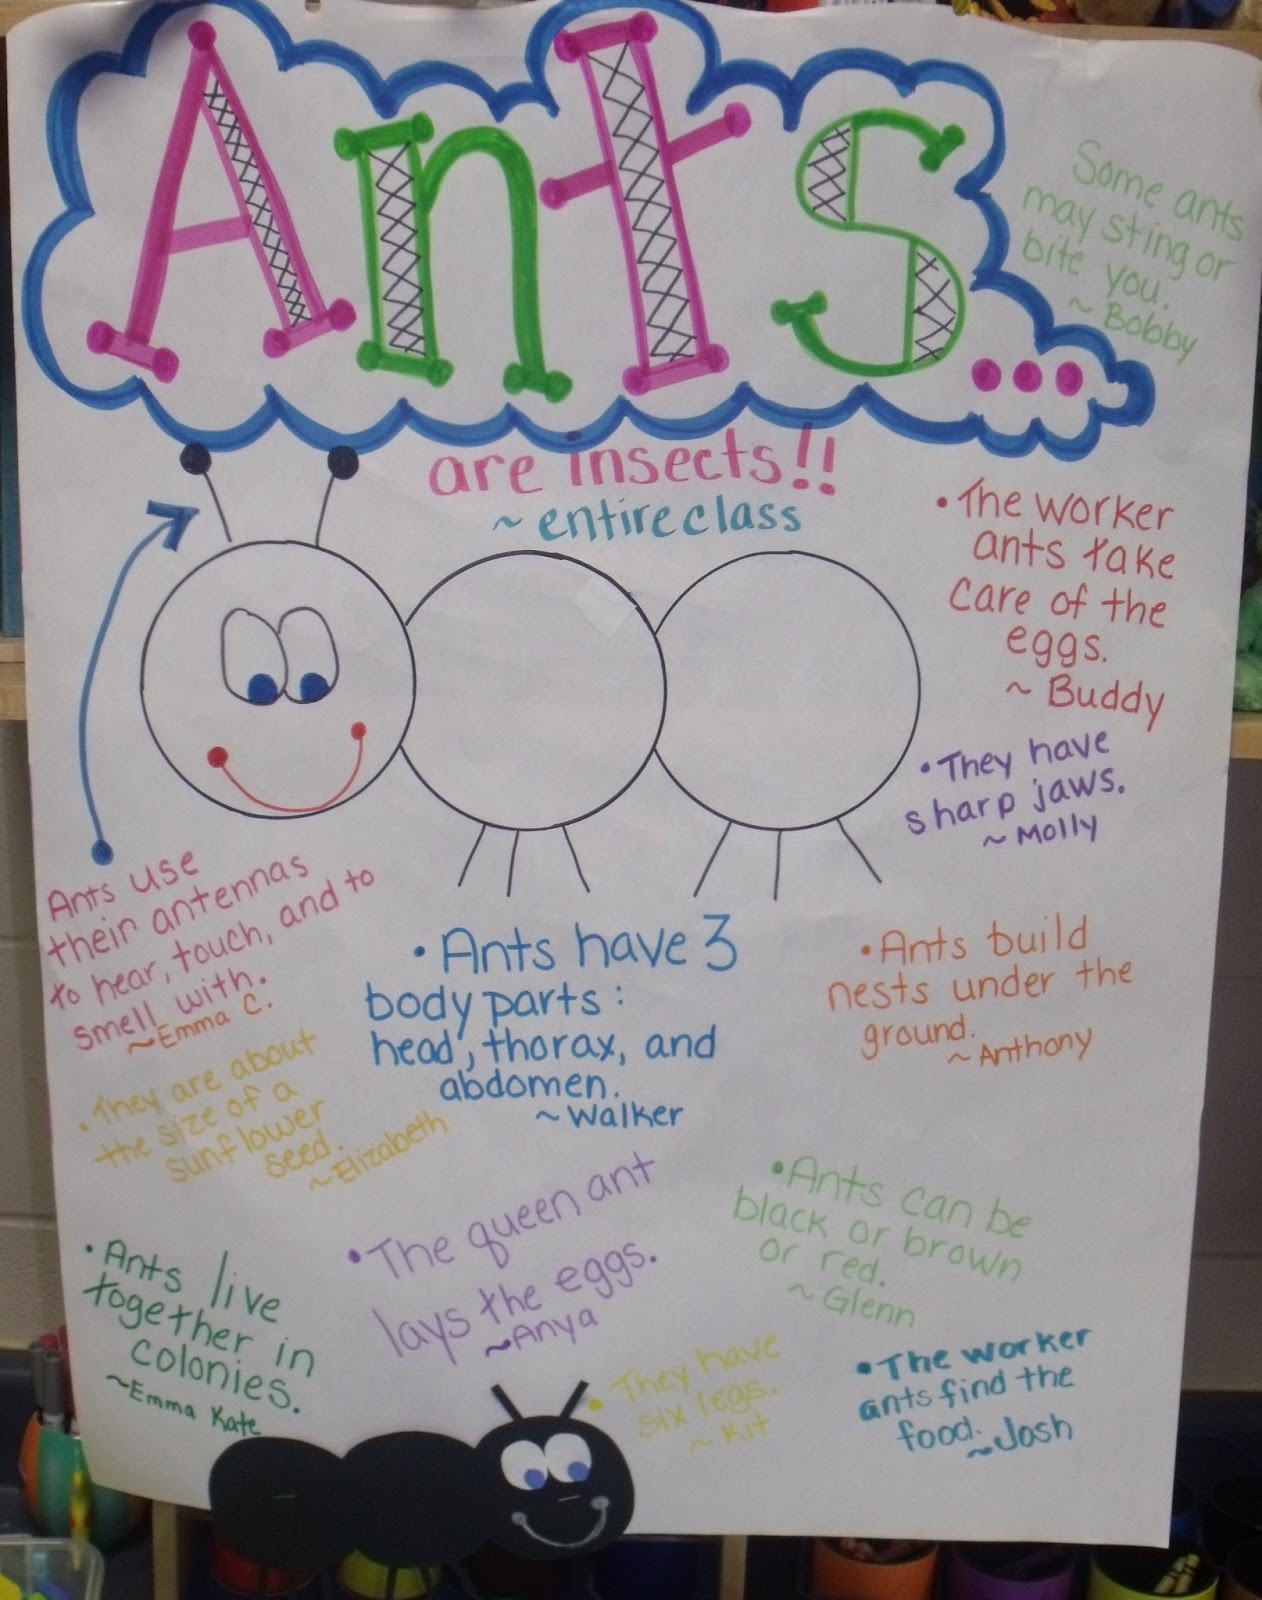 Ants...
are insects!!
~ entire class
Some ants
may sting or
bite you.
~ Bobby
• The worker
ants take
care of the
eggs.
~ Buddy
• They have
sharp jaws.
~ Molly
Ants use
their antennas
to hear, touch, and to
smell with.
~Emma C.
• Ants have 3
body parts:
head, thorax, and
abdomen.
~Walker
• Ants build
nests under the
ground.
~Anthony
• They are about
the size of a
sunflower
seed.
~Elizabeth
• The queen ant
lays the eggs.
~Anya
• Ants can be
black or brown
or red.
~Glenn
• Ants live
together in
colonies.
~Emma Kate
• They have
six legs.
~ Kit
• The worker
ants find the
food.
~Josh